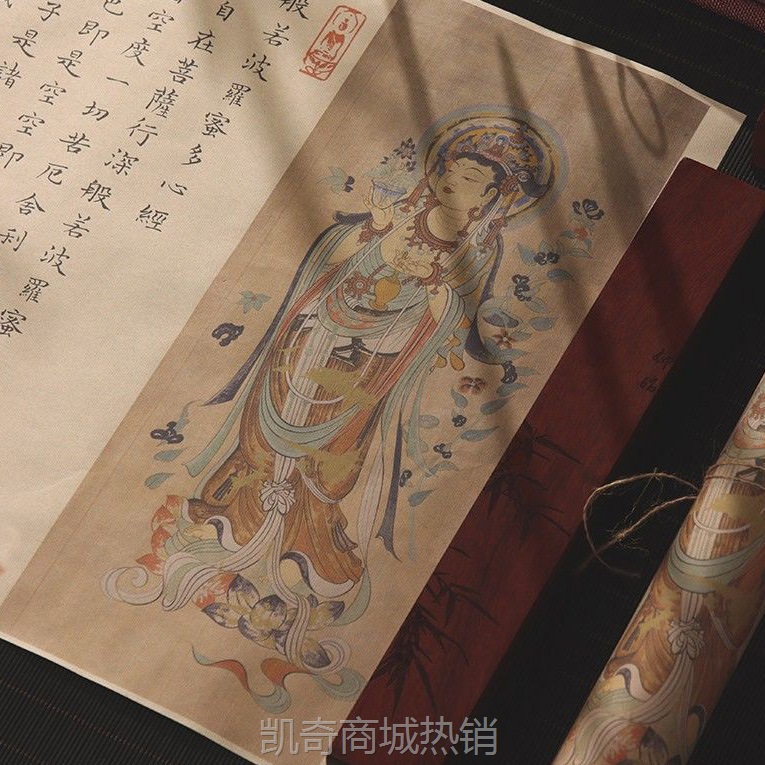 般若波羅蜜多心經
自在菩薩行深般若波羅蜜
空度一切苦厄舍利
色即是空空即
子是諸
凯奇商城热销